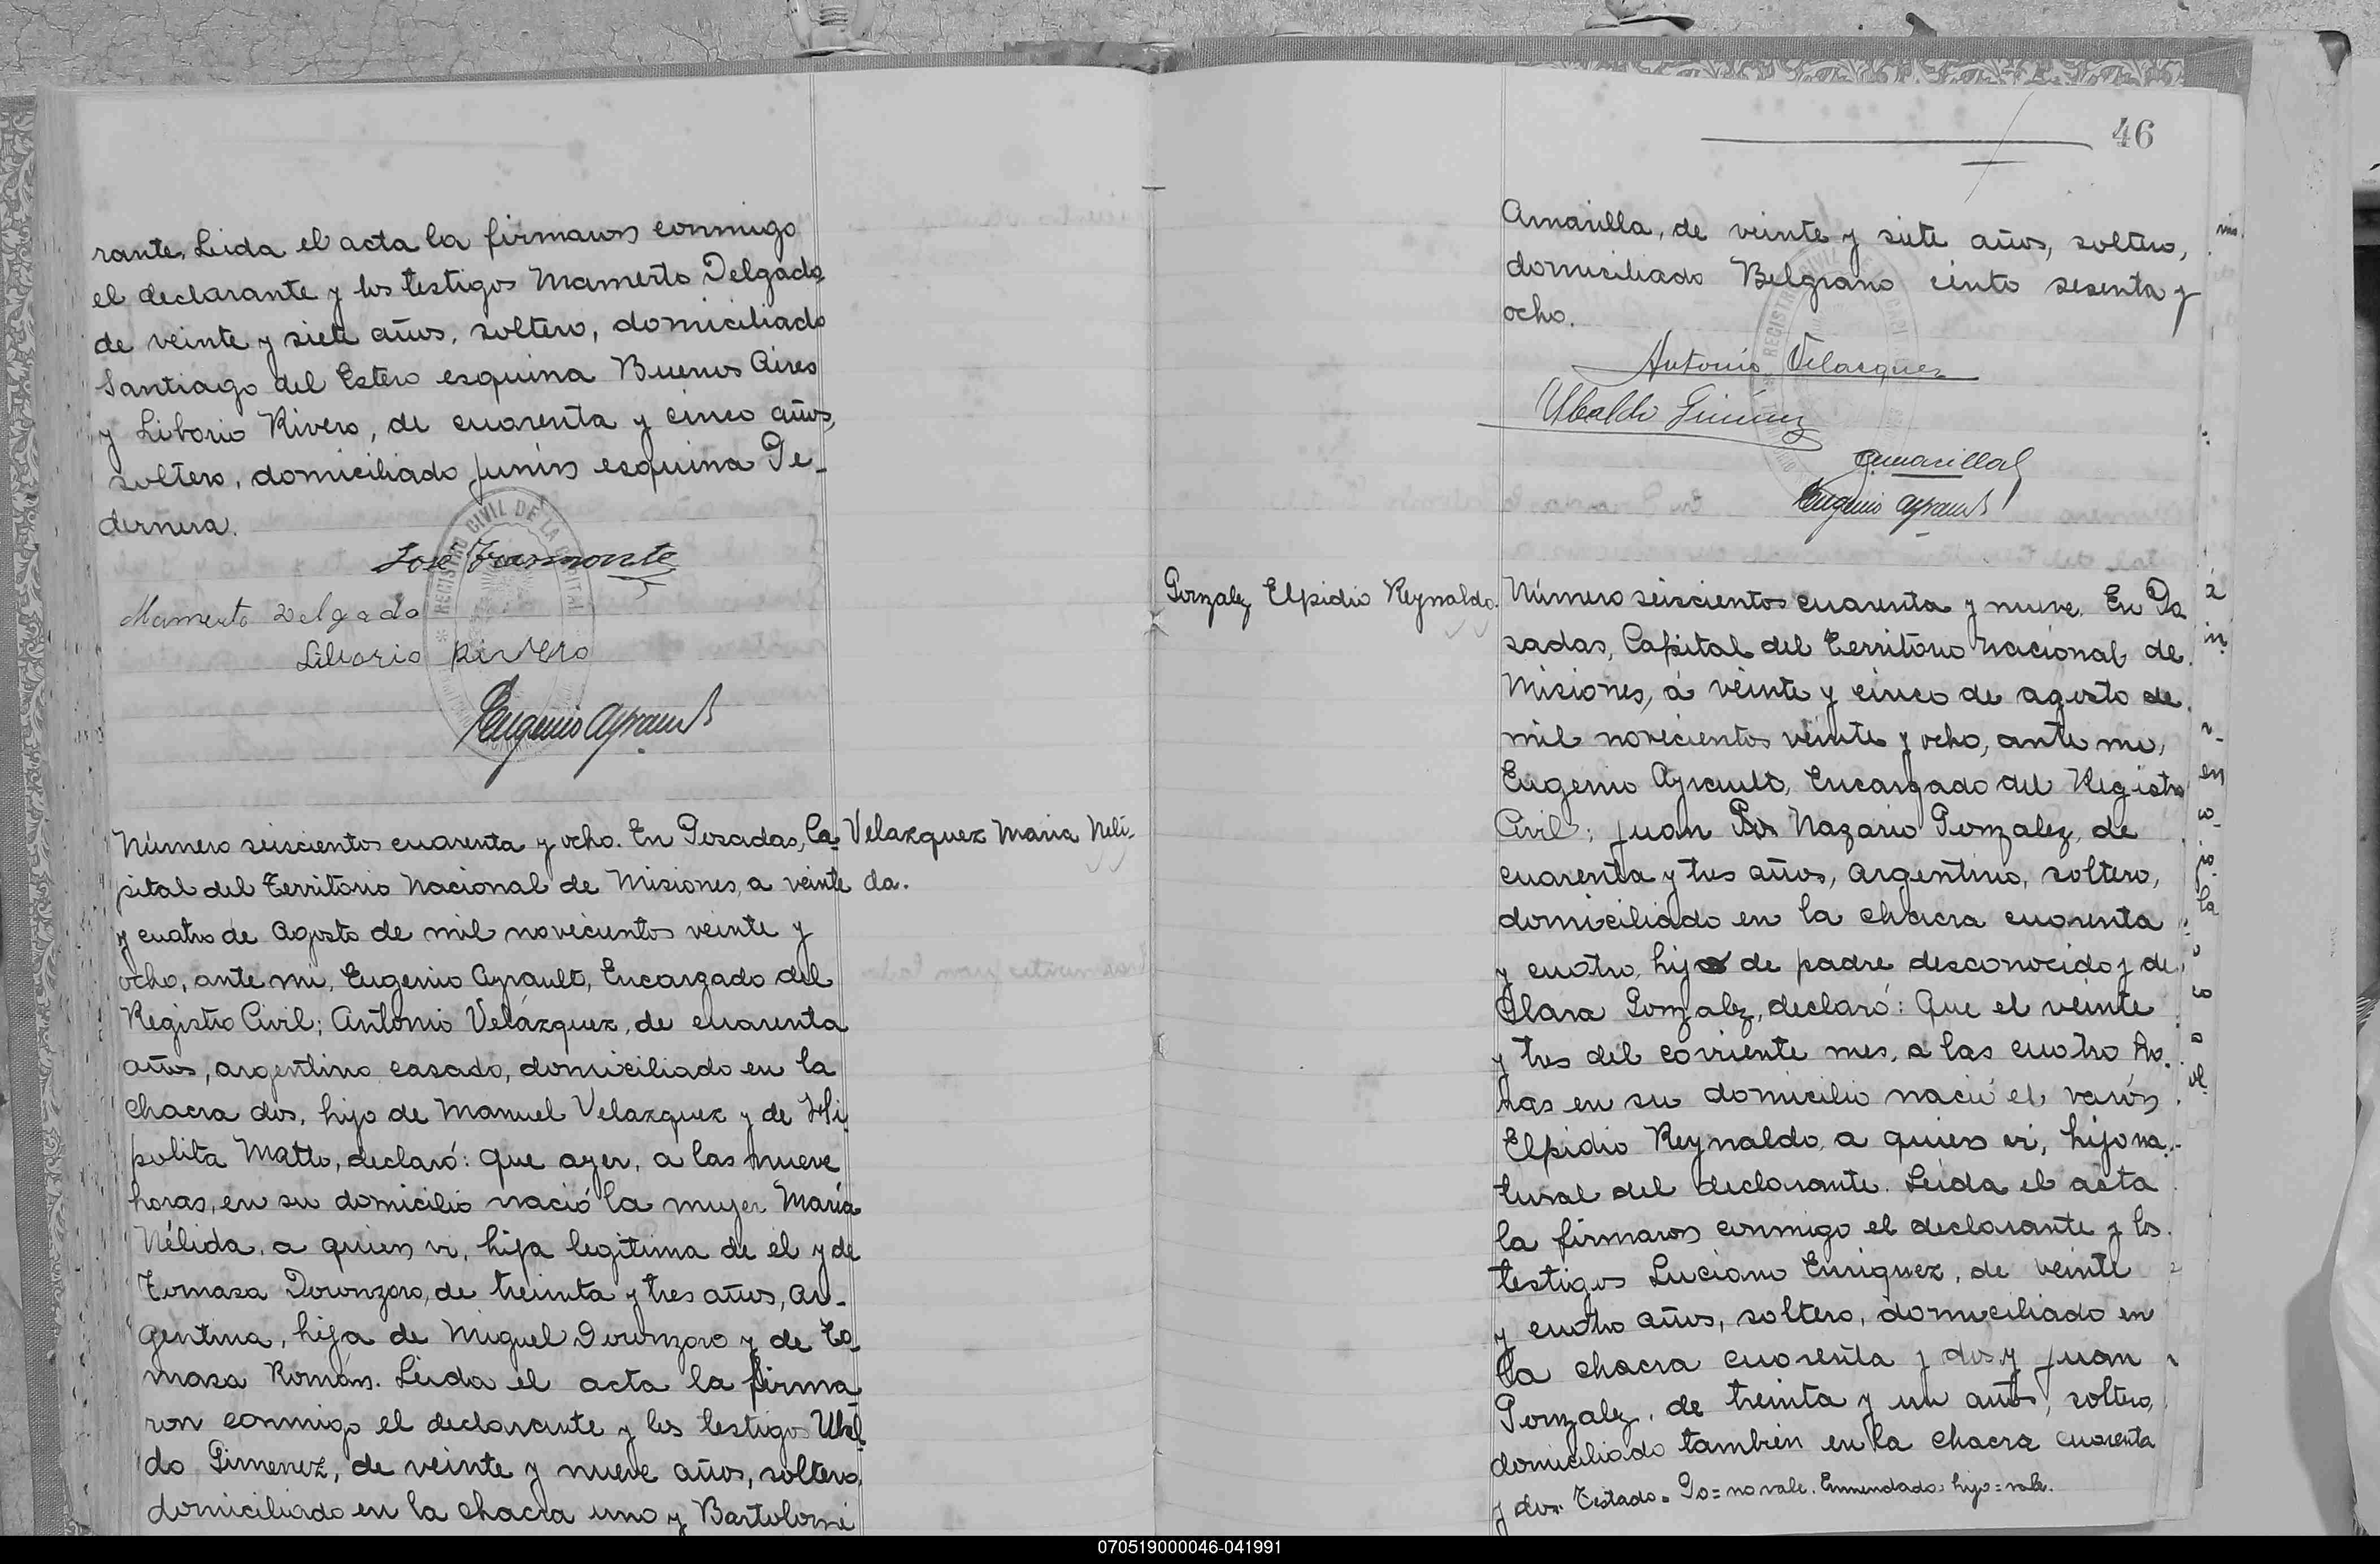 rante, Leida el acta la firmaron conmigo
el declarante y los testigos Mamerto Delgado,
de veinte y siete años, soltero, domiciliado
Santiago del Estero esquina Buenos Aires
y Liborio Rivero, de cuarenta y cinco años,
soltero, domiciliado Junín esquina Pe-
dernera.
José
Mamerto Delgado
Liborio Rivero
Eugenio Ayrault
REGISTRO CIVIL DE LA CAPITAL
Número seiscientos cuarenta y ocho. En Posadas, Ca-
pital del Territorio Nacional de Misiones, a veinte
y cuatro de Agosto de mil novecientos veinte y
ocho, ante mi, Eugenio Ayrault, Encargado del
Registro Civil; Antonio Velázquez, de cuarenta
años, argentino casado, domiciliado en la
chacra dos, hijo de Manuel Velazquez y de Hi-
polita Matto, declaró: que ayer, a las nueve
horas, en su domicilio nació la mujer María
Nélida, a quien vi, hija legitima de el y de
Tomasa Doronzoro, de treinta y tres años, ar-
gentina, hija de Miguel Doronzoro y de To-
masa Román. Leida el acta la firma-
ron conmigo el declarante y los testigos Ubal-
do Gimenez, de veinte y nueve años, soltero,
domiciliado en la chacra uno y Bartolomé
Velazquez Maria Néli-
da.
46
Amarilla, de veinte y siete años, soltero,
domiciliado Belgrano ciento sesenta y
ocho.
Antonio Velazquez
Ubaldo Gimenez
Amarilla
Eugenio Ayrault
Gonzalez Elpidio Reynaldo.
Número seiscientos cuarenta y nueve. En Po
sadas, Capital del Territorio Nacional de
Misiones, á veinte y cinco de agosto de
mil novecientos veinte y ocho, ante mi,
Eugenio Ayrault, Encargado del Registro
Civil; Juan Po Nazario Gonzalez, de
cuarenta y tres años, Argentino, soltero,
domiciliado en la chacra cuarenta
y cuatro, hijo de padre desconocido y de
Clara Gonzalez, declaró: Que el veinte
y tres del corriente mes, a las cuatro ho-
ras en su domicilio nació el varón
Elpidio Reynaldo, a quien vi, hijo na-
tural del declarante. Leida el acta
la firmaron conmigo el declarante y los
testigos Luciano Enriquez, de veinte
y cuatro años, soltero, domiciliado en
la chacra cuarenta y dos y Juan
Gonzalez, de treinta y un años, soltero,
domiciliado también en la chacra cuarenta
y dos. Testado = Po = no vale. Enmendado: hijo = vale.
070519000046-041991